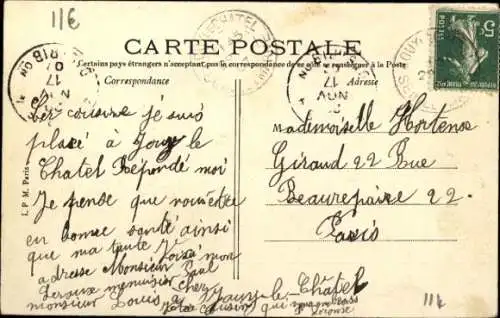 11€
CARTE POSTALE
Certains pays étrangers n'acceptant pas la correspondance de ce côté, se renseigner à la Poste
Correspondance
Adresse
cousine je suis
placé à Jouy le
Chatel Répondé moi
Je pense que vous êtes
en bonne santé ainsi
que ma tante Voisà mon
adresse Monsieur Paul
Leroux menuisier chez
monsieur Louis à Jouy-le-Châtel
cousin qui
Mademoiselle Hortense
Giraud 22 Rue
Beaurepaire 22.
Paris
I. P. M. Paris
5c
11€